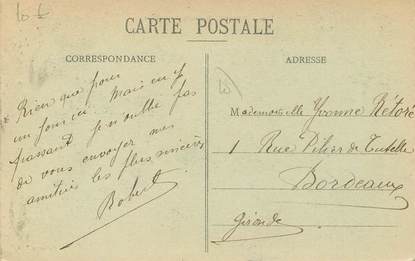 10 £
CARTE POSTALE
CORRESPONDANCE
Rien que pour
un jour ici. Mais en y
passant je n'oublie pas
de vous envoyer mes
amitiés les plus sincères
Robert
ADRESSE
Mademoiselle Yvonne Rétoré
1 Rue Pilier de Tutelle
Bordeaux
Gironde